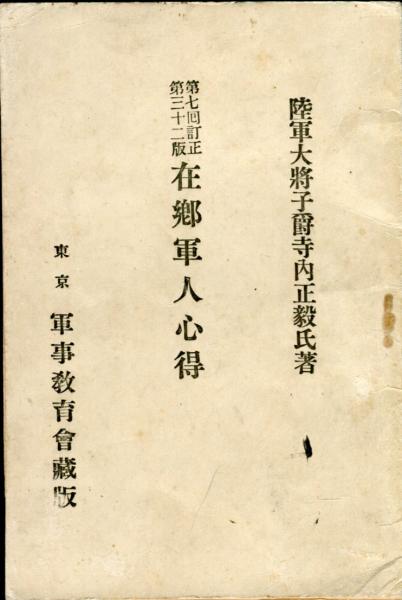 陸軍大將子爵寺內正毅氏著
第七回訂正
第三十二版
在鄕軍人心得
東京
軍事敎育會藏版